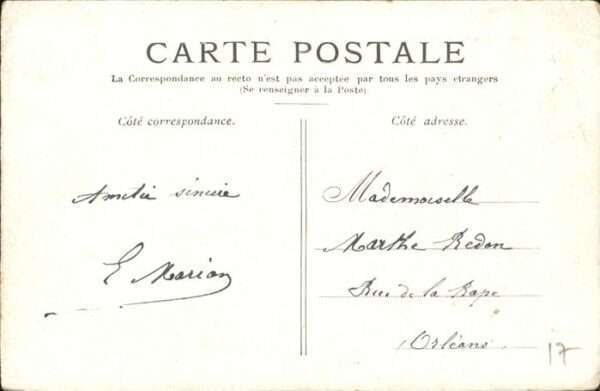 CARTE POSTALE
La Correspondance au recto n'est pas acceptée par tous les pays etrangers
(Se renseigner à la Poste)
Côté correspondance.
Amitié sincère
E Marion
Côté adresse.
Mademoiselle
Marthe Redon
Rue de la Rape
Orléans
17